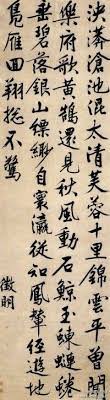 泱漭滄池混太清芙蓉十里錦雲平曾聞
樂府歌黃鵠還見秋風動石鯨玉蝀連蜷
垂碧落銀山縹緲自寰瀛從知鳳輦經遊地
鳧雁回翔總不驚
徵明